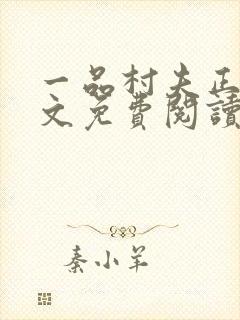 一品村夫正
文免費閱讀
秦小羊